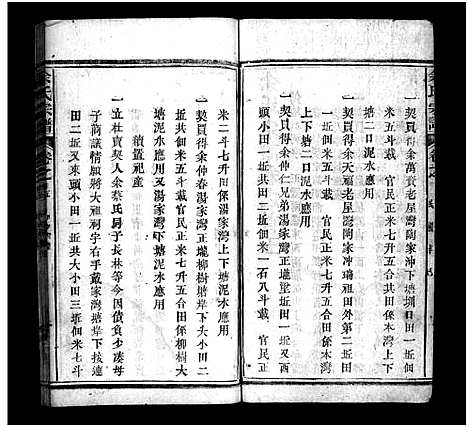 一契買得余萬賁老屋灣陶家冲下塘圳口田一坵
共佃米五斗載　官民正米七升五合田係本灣上下
塘二口泥水應用
一契買得余天福老屋灣陶家冲瑞祖田外第二坵田
一坵共佃米五斗載　官民正米七升五合田係本灣
上下塘二口泥水應用
一契貝得余仲仁兄弟湯家灣正壠堂坵田一坵又西
頭小田一坵共田二坵佃米一石八斗載　官民正
米二斗七升田係湯家灣上下二塘泥水應用
一契買得余仲春湯家灣正壠柳樹塘岸下大小田二
坵共佃米五斗載　官民正米七升五合田係柳樹大
塘泥水應用又湯家灣下塘泥水應用
續置祀産
一立杜賣契人余蔡氏同子長林等今因債負少湊母
子商議情願將大祖祠字右手戴家灣塘岸下拔連
田二坵又東頭小田一坵共大小田三坵佃米七斗
余氏宗譜